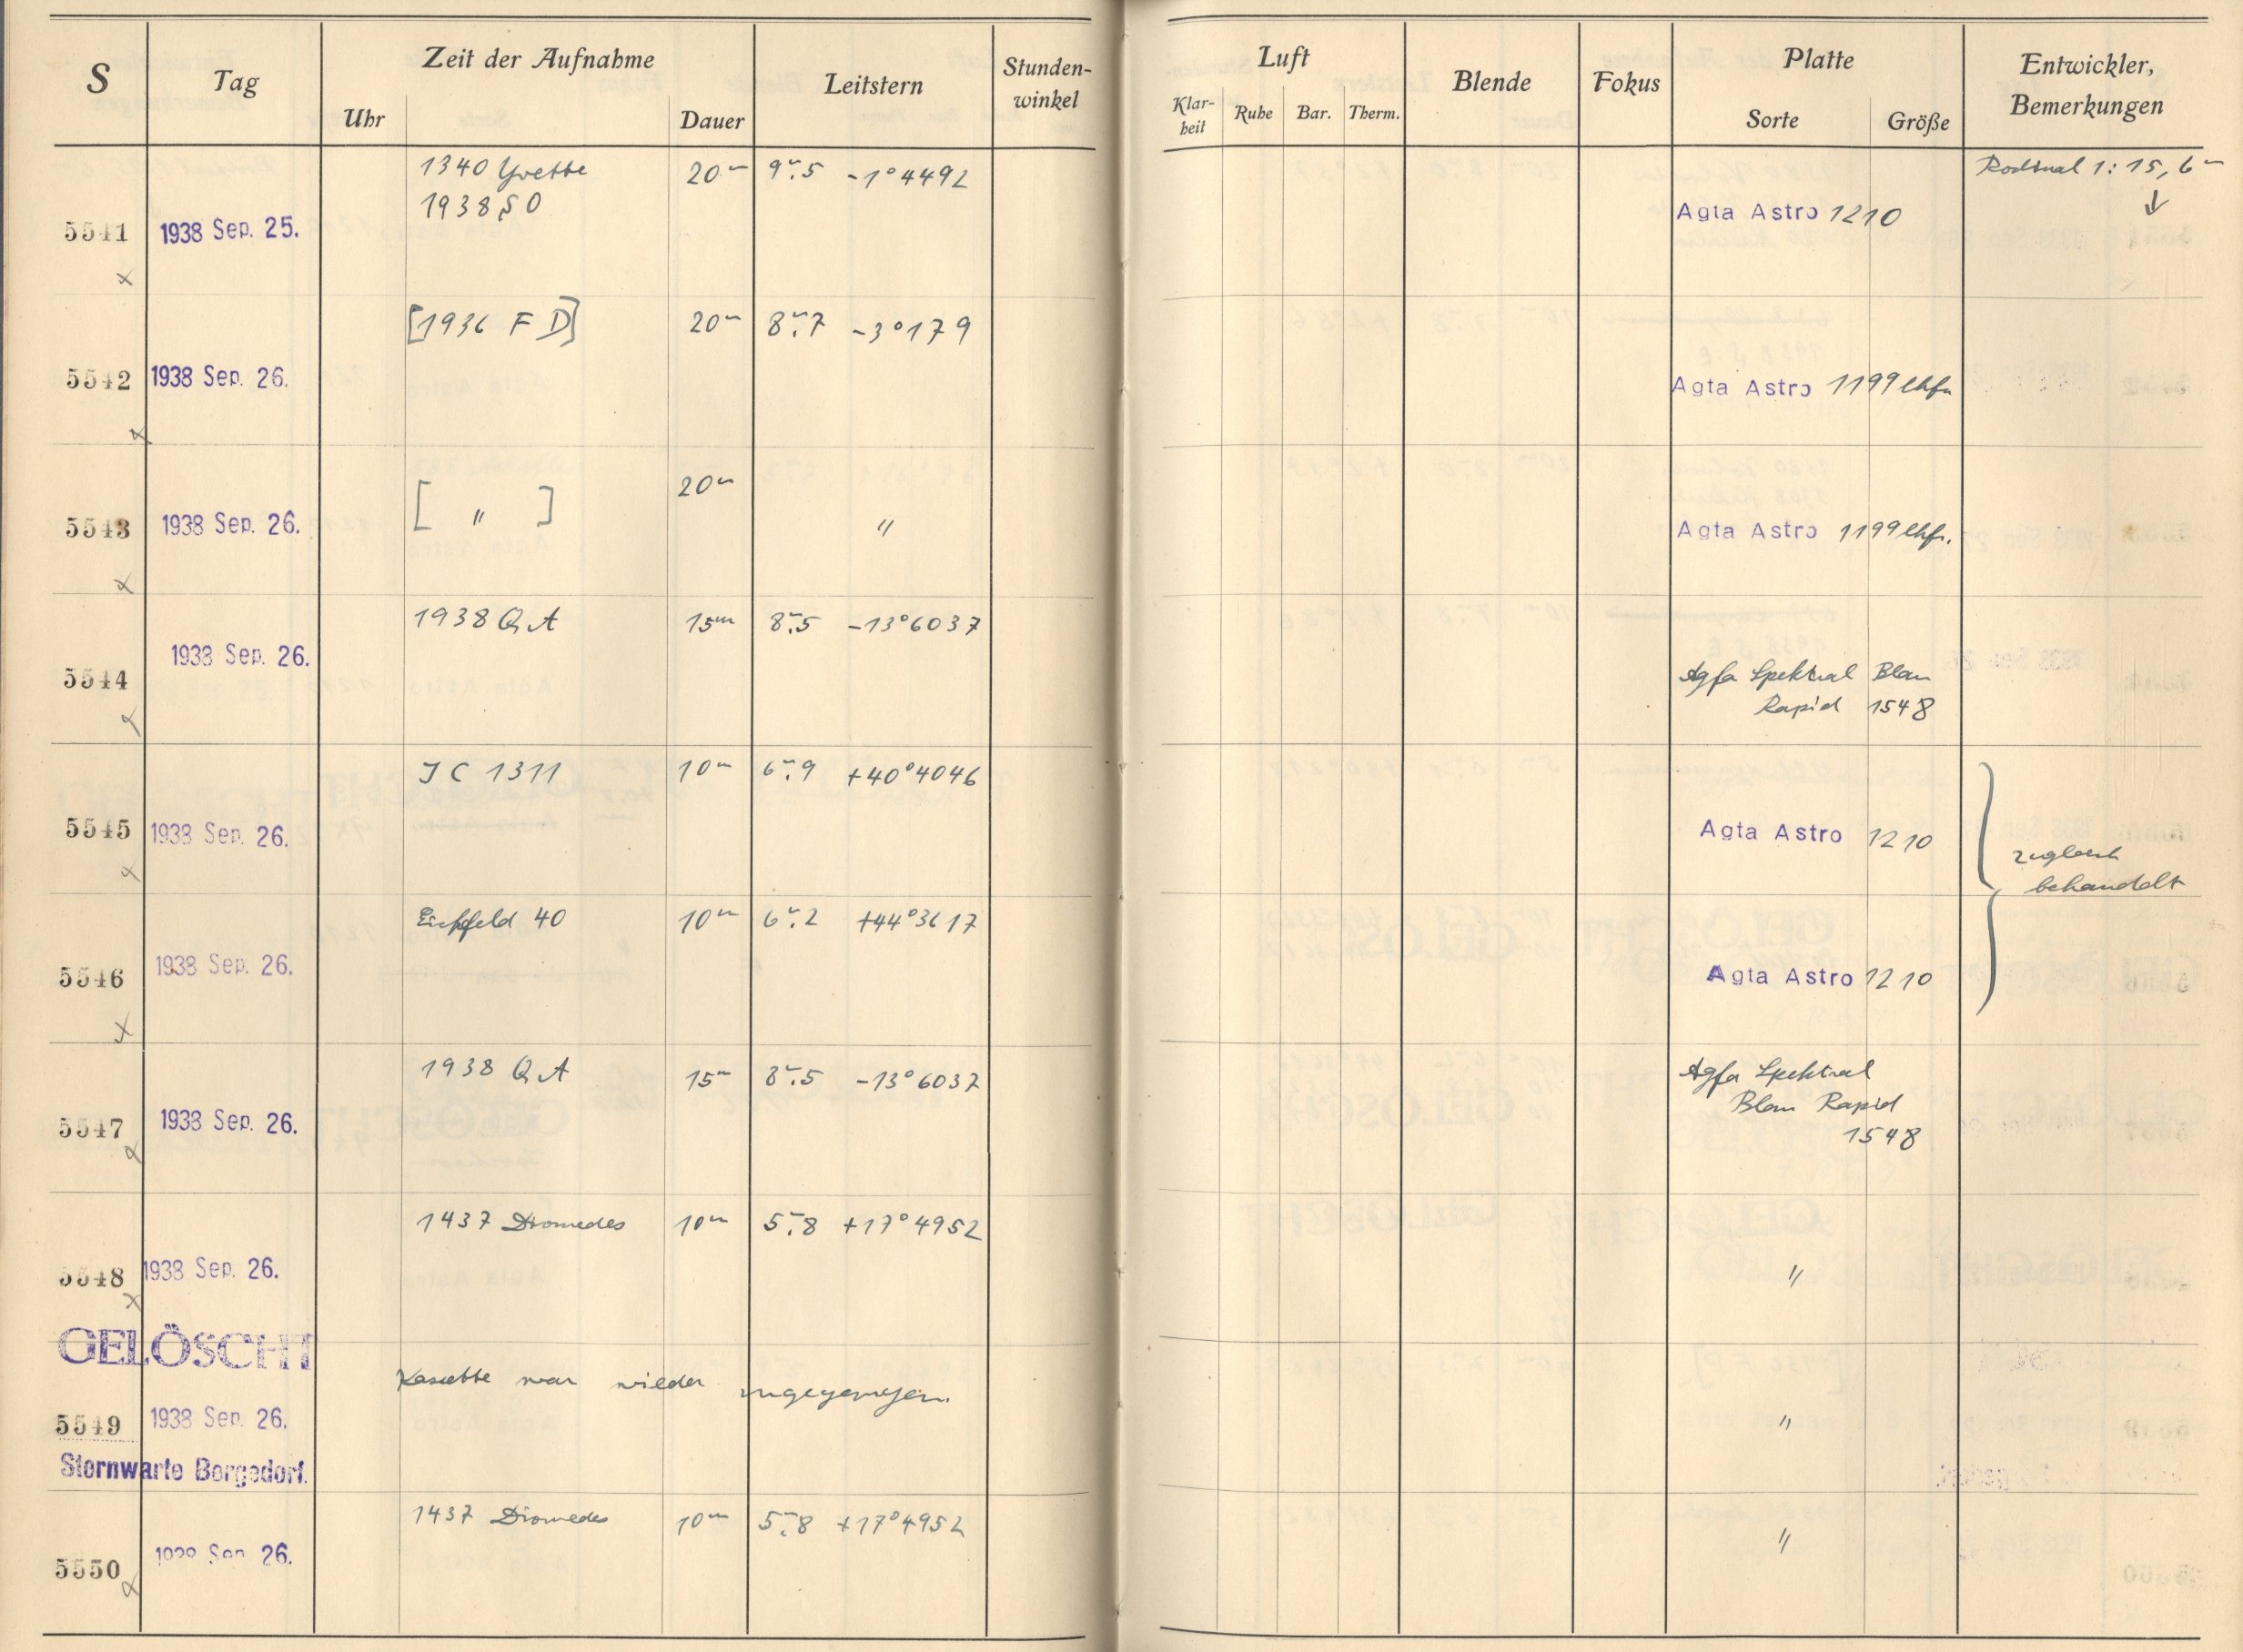 S Tag Zeit der Aufnahme Leitstern Stunden-
winkel
Uhr Dauer
Luft Blende Fokus Platte Entwickler,
Bemerkungen
Klar-
heit Ruhe Bar. Therm. Sorte Größe
1340 Yvette 20m 9m.5 -1°4492 Rodinal 1:15, 6m
1938 SO ↓
5541 1938 Sep. 25. Agfa Astro 1210
[1936 FD] 20m 8m.7 -3°179
5542 1938 Sep. 26. Agfa Astro 1199 lhfr.
20m
5543 1938 Sep. 26. [ " ] " Agfa Astro 1199 lhfr.
1938 QA 15m 8m.5 -13°6037
5544 1938 Sep. 26. Agfa Spektral Blau
Rapid 1548
JC 1311 10m 6m.9 +40°4046
5545 1938 Sep. 26. Agfa Astro 1210
zugleich
behandelt
Eichfeld 40 10m 6m.2 +44°3617
5546 1938 Sep. 26. Agfa Astro 1210
1938 QA 15m 8m.5 -13°6037 Agfa Spektral
5547 1938 Sep. 26. Blau Rapid
1548
1437 Diomedes 10m 5m.8 +17°4952
5548 1938 Sep. 26. "
GELÖSCHT
Kassette war wieder
5549 1938 Sep. 26. "
Sternwarte Bergedorf.
1437 Diomedes 10m 5m.8 +17°4952
5550 1938 Sep. 26. "